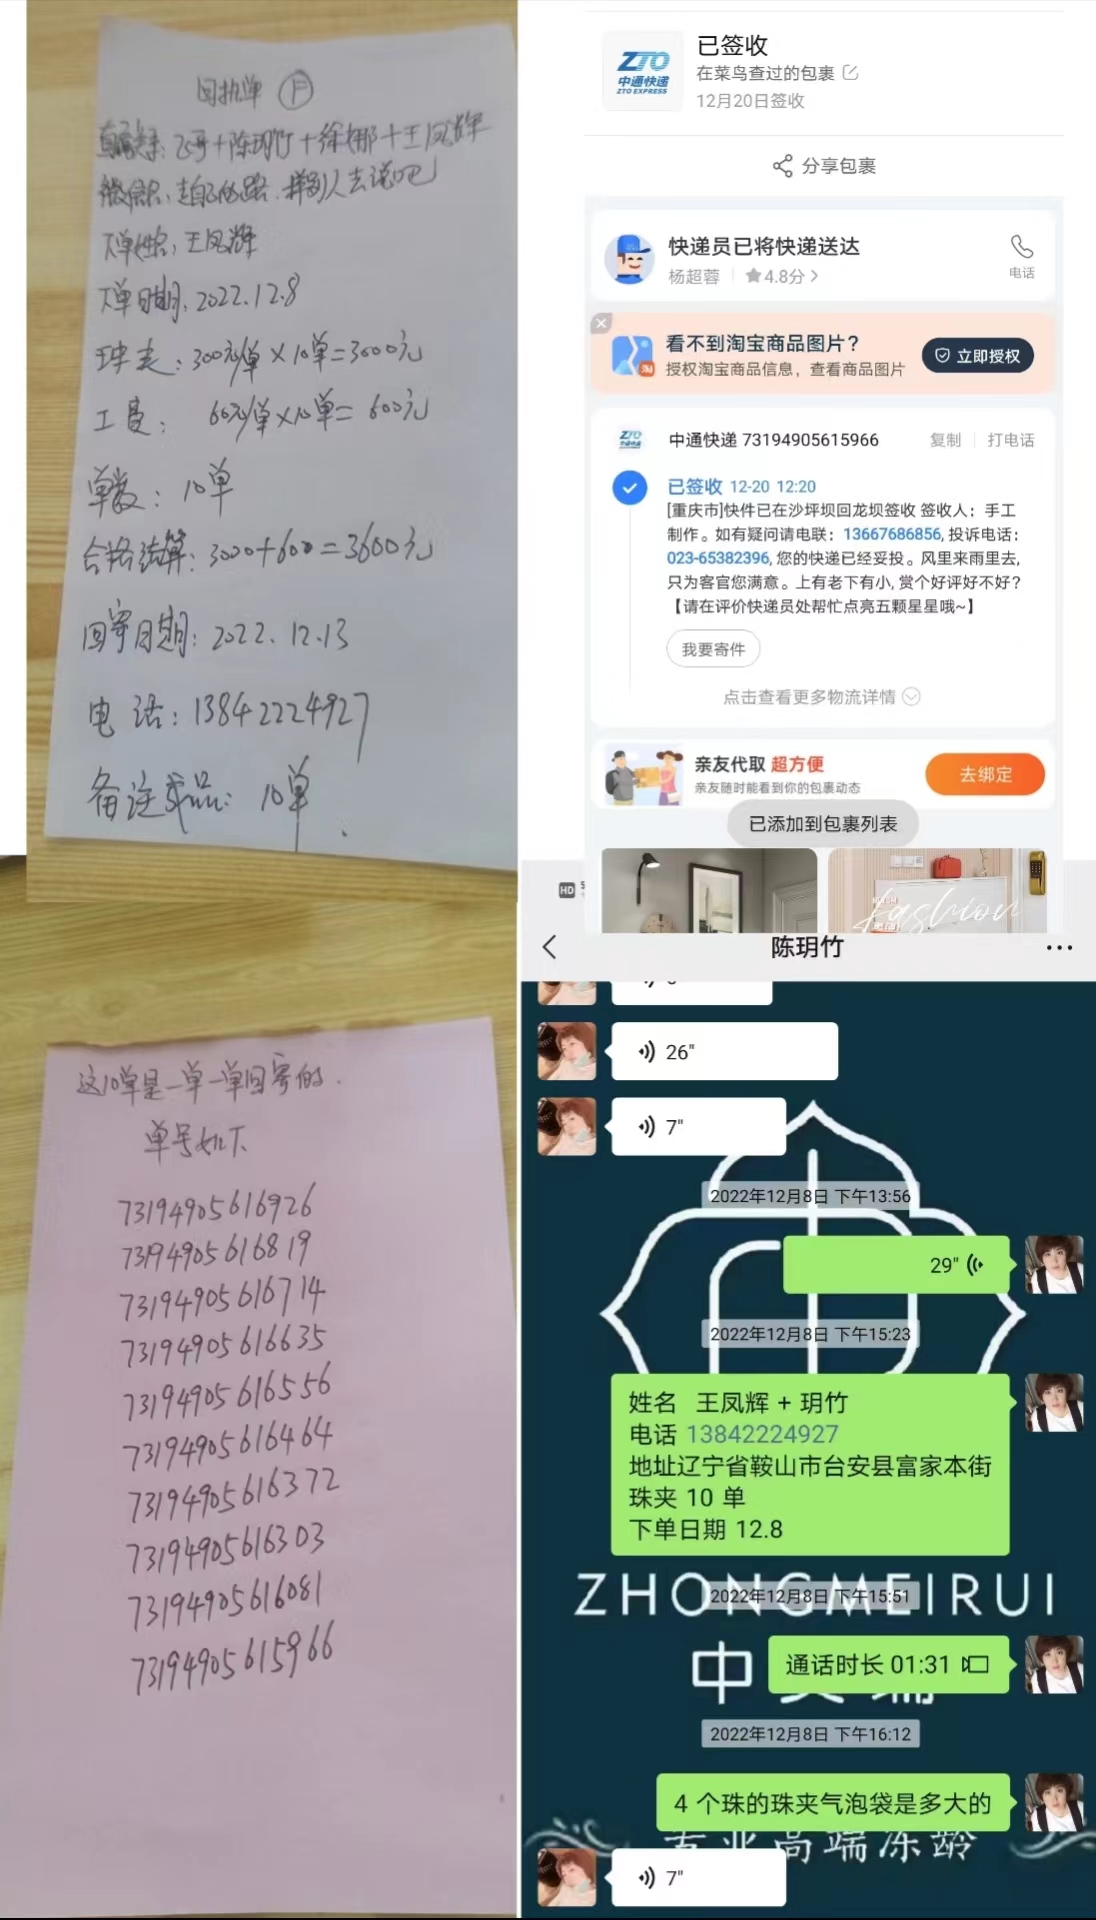 回执单 F
直属关系：飞哥+陈玥竹+徐娜+王凤辉
微信名：走自己的路.让别人去说吧
下单姓名：王凤辉
下单日期：2022.12.8
珠夹：300元/单×10单=3000元
工费：60元/单×10单=600元
单数：10单
合格结算：3000+600=3600元
回寄日期：2022.12.13
电话：13842224927
备注成品：10单.
这10单是一单一单回寄的.
单号如下
73194905616926
73194905616819
73194905616714
73194905616635
73194905616556
73194905616464
73194905616372
73194905616303
73194905616081
73194905615966
ZTO
中通快递
ZTO EXPRESS
已签收
在菜鸟查过的包裹
12月20日签收
分享包裹
快递员已将快递送达
杨超蓉 4.8分
电话
看不到淘宝商品图片？
授权淘宝商品信息，查看商品图片
立即授权
淘
ZTO
中通快递 73194905615966 复制 打电话
已签收 12-20 12:20
[重庆市]快件已在沙坪坝回龙坝签收 签收人：手工
制作。如有疑问请电联：13667686856,投诉电话：
023-65382396,您的快递已经妥投。风里来雨里去,
只为客官您满意。上有老下有小,赏个好评好不好？
【请在评价快递员处帮忙点亮五颗星星哦~】
我要寄件
点击查看更多物流详情
亲友代取 超方便
亲友随时能看到你的包裹动态
去绑定
已添加到包裹列表
fashion
HD
陈玥竹
26"
7"
2022年12月8日 下午13:56
29"
2022年12月8日 下午15:23
姓名 王凤辉 + 玥竹
电话 13842224927
地址辽宁省鞍山市台安县富家本街
珠夹 10 单
下单日期 12.8
ZHONGMEIRUI
2022年12月8日 下午15:51
中
通话时长 01:31
2022年12月8日 下午16:12
4 个珠的珠夹气泡袋是多大的
专业高端冻龄
7"